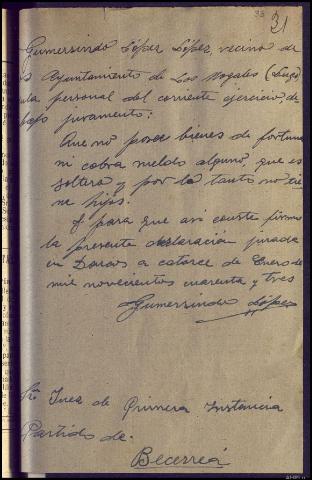 33 31
Gumersindo López López, vecino de
Ayuntamiento de Los Nogales (Lugo)
personal del corriente ejercicio, de-
bajo juramento:
Que no posee bienes de fortuna
ni cobra sueldo alguno, que es
soltero y por lo tanto no tie-
ne hijos.
Y para que asi conste firmo
la presente declaración jurada
en Doncos a catorce de Enero de
mil novecientos cuarenta y tres
Gumersindo López
Sr. Juez de Primera Instancia
Partido de.
Becerreá